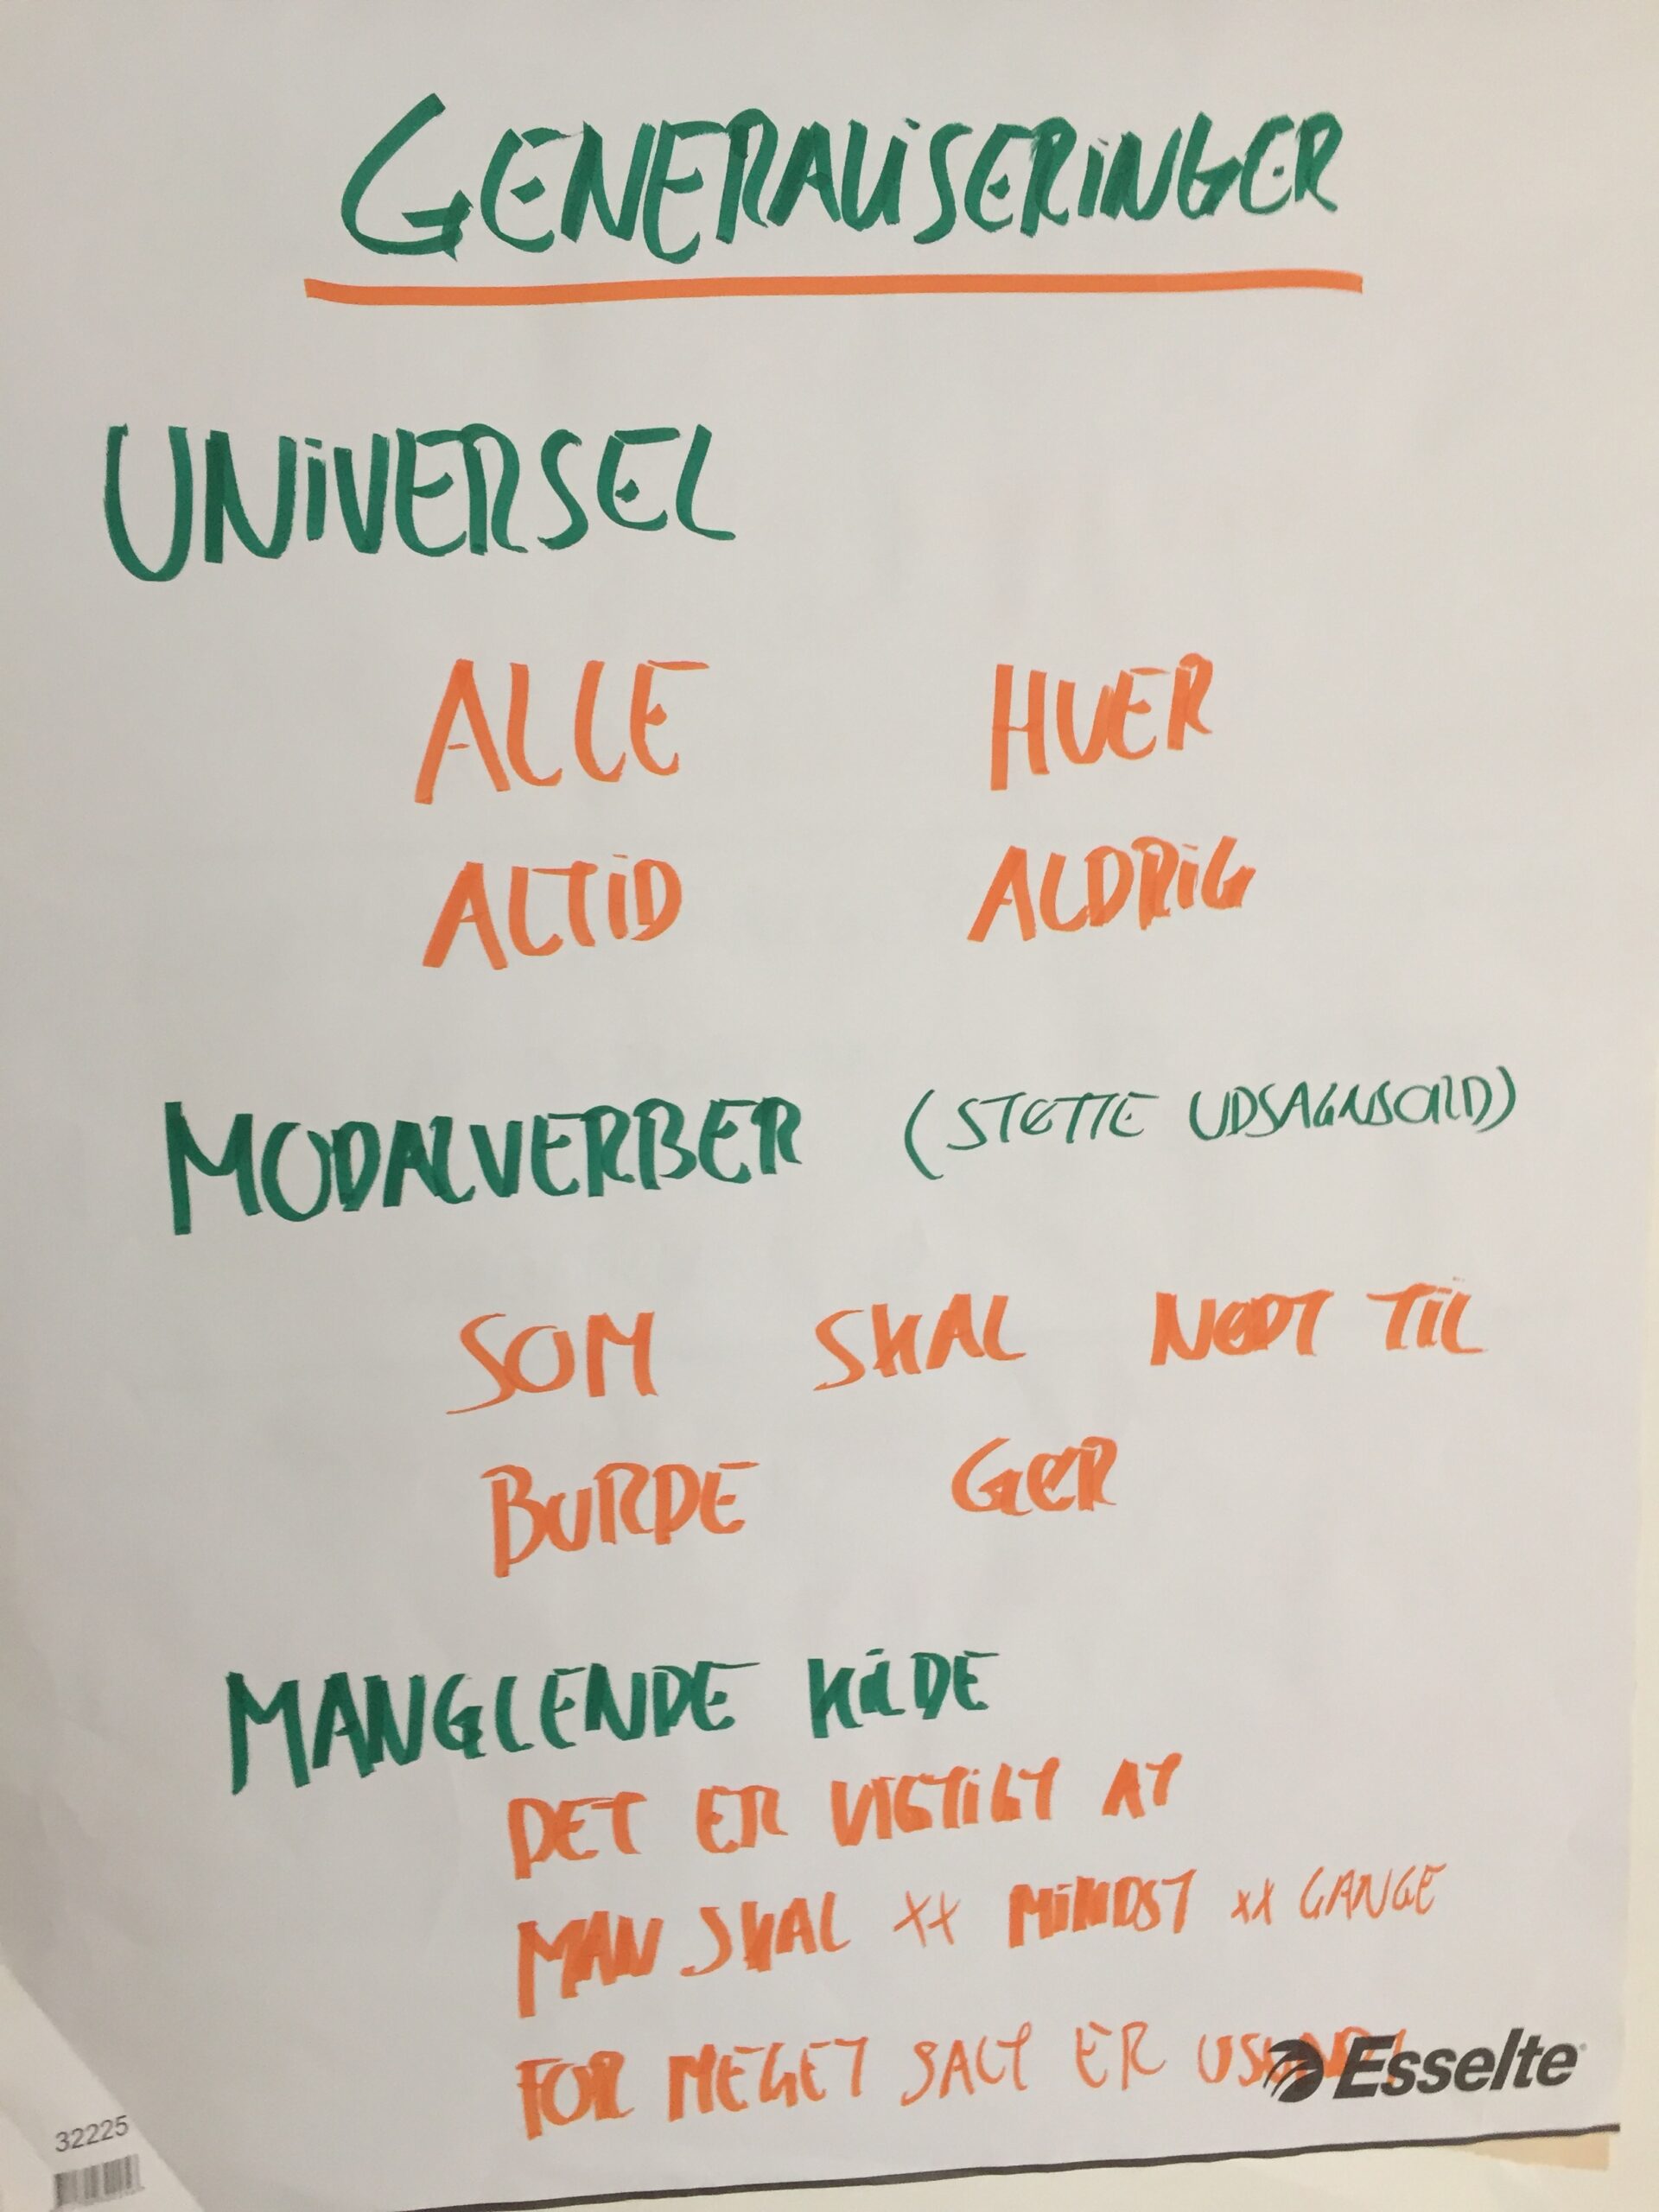 GENERALISERINGER
UNIVERSEL
ALLE HVER
ALTID ALDRIG
MODALVERBER (STØTTE UDSAGNSORD)
SOM SKAL NØDT TIL
BURDE GØR
MANGLENDE KILDE
DET ER VIGTIGT AT
MAN SKAL XX MINDST XX GANGE
FOR MEGET SALT ER USUNDT
Esselte
32225